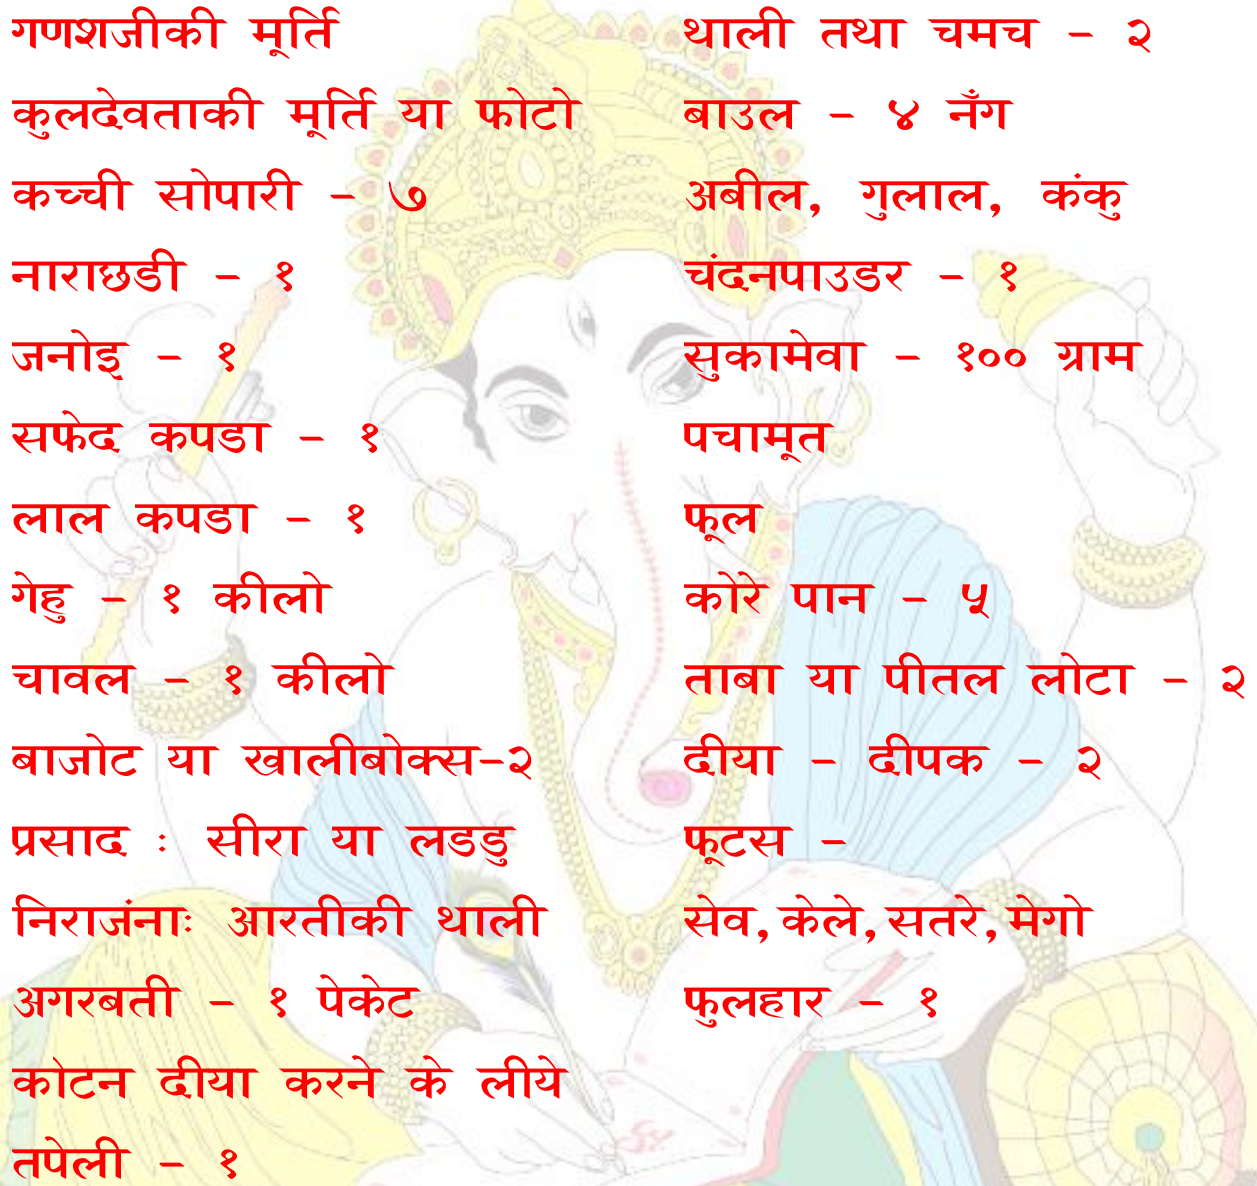 गणशजीकी मूर्ति
कुलदेवताकी मूर्ति या फोटो
कच्ची सोपारी - ७
नाराछडी - १
जनोइ - १
सफेद कपडा - १
लाल कपडा - १
गेहु - १ कीलो
चावल - १ कीलो
बाजोट या खालीबोक्स-२
प्रसाद : सीरा या लडडु
निराजंनाः आरतीकी थाली
अगरबती - १ पेकेट
कोटन दीया करने के लीये
तपेली - १
थाली तथा चमच - २
बाउल - ४ नँग
अबील, गुलाल, कंकु
चंदनपाउडर - १
सुकामेवा - १०० ग्राम
पचामृत
फूल
कोरे पान - ५
ताबा या पीतल लोटा - २
दीया - दीपक - २
फ्रूटस -
सेव, केले, सतरे, मेगो
फुलहार - १